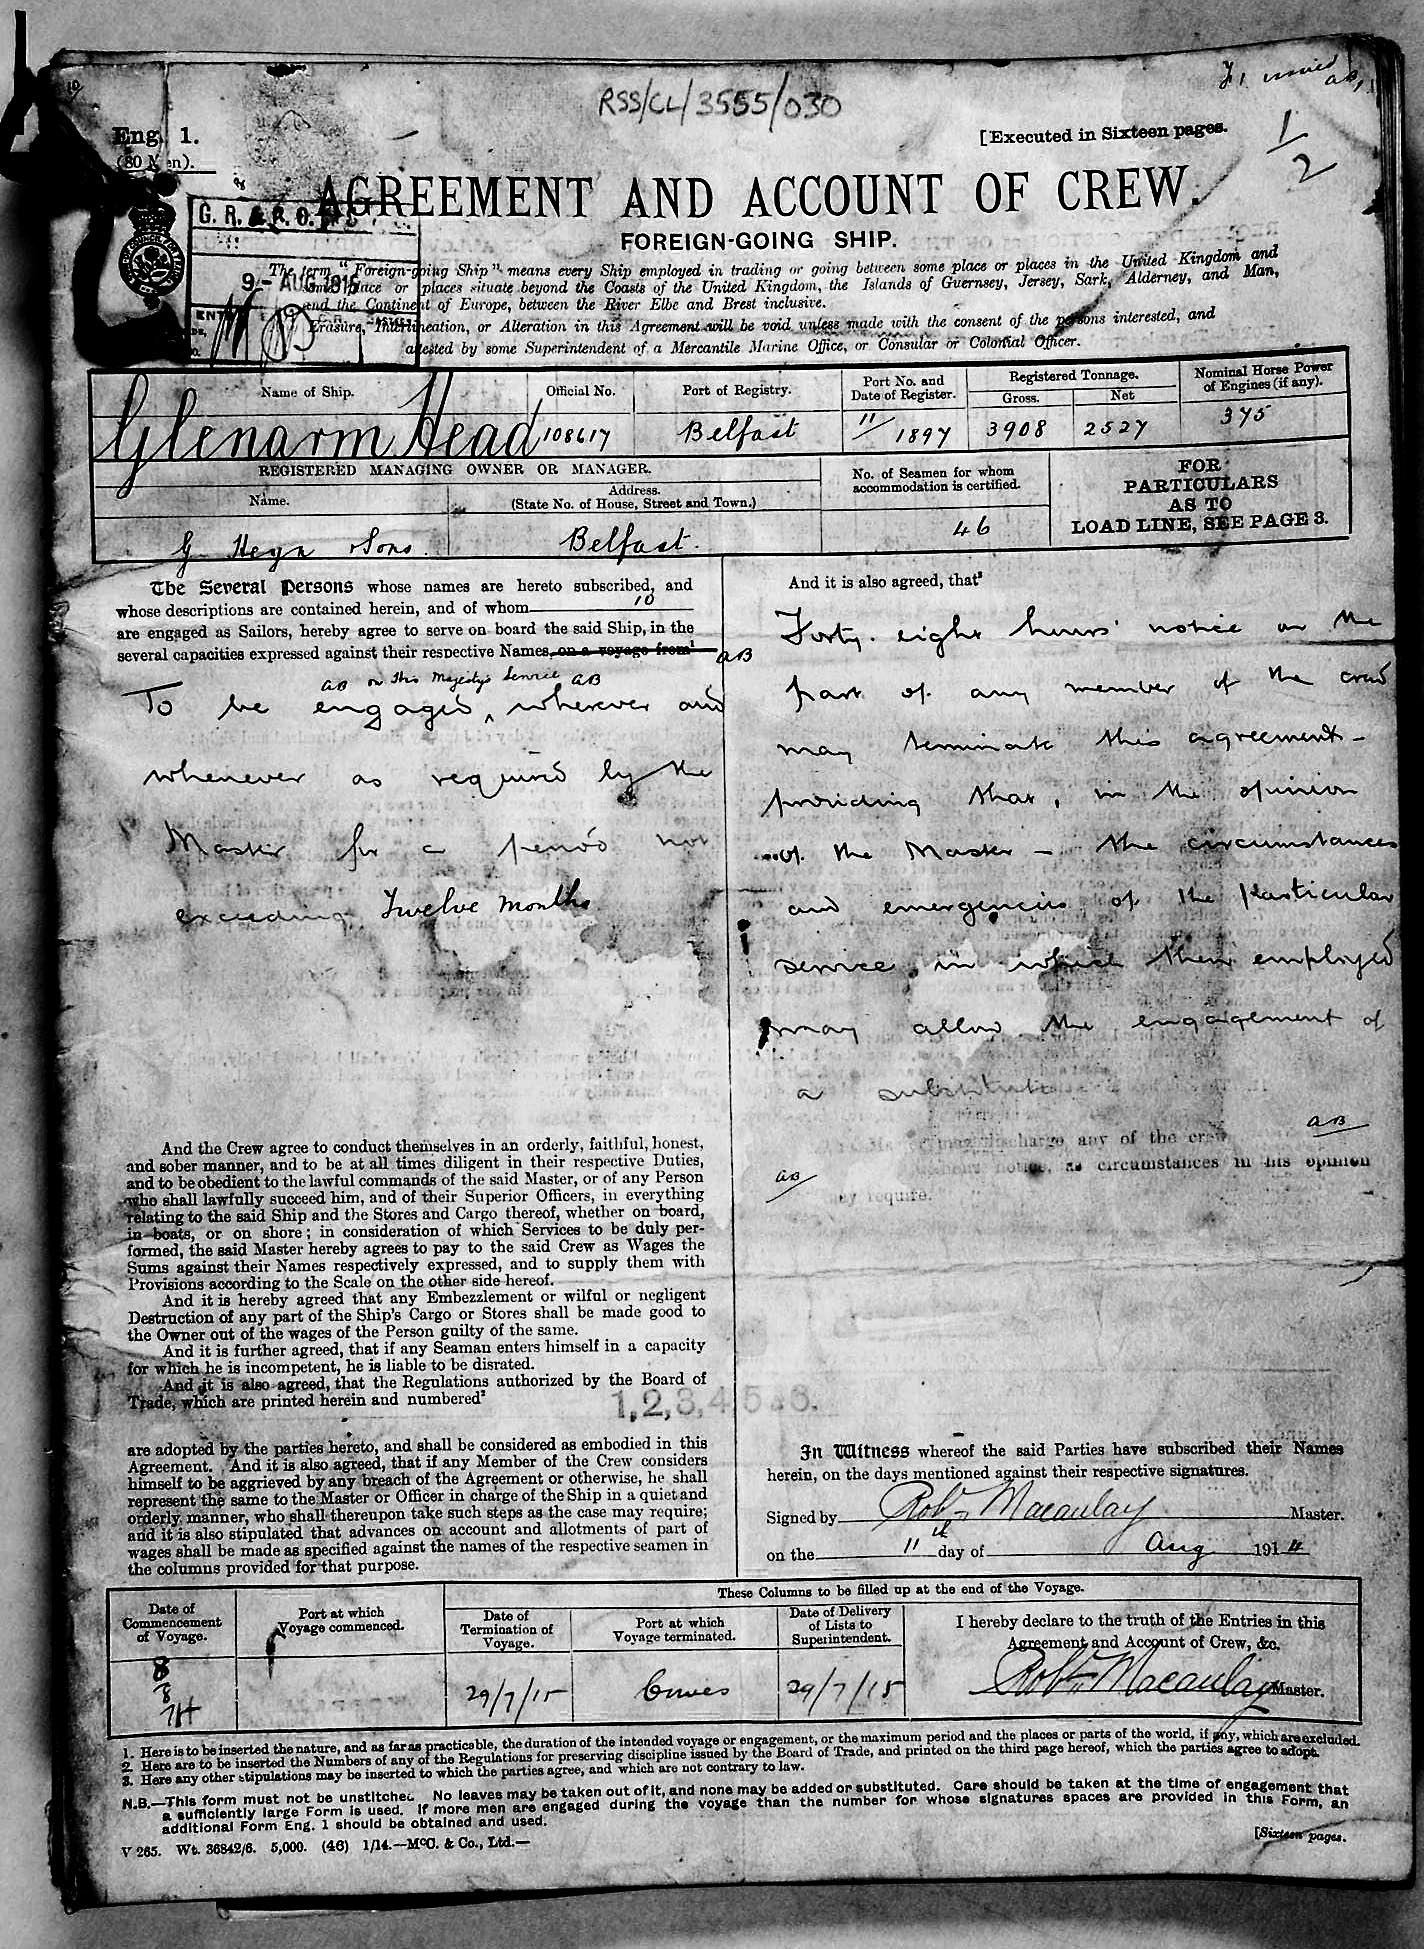 RSS/CL/3555/030
Eng. 1.
(80 Men).
[Executed in Sixteen pages.
1/2
AGREEMENT AND ACCOUNT OF CREW.
FOREIGN-GOING SHIP.
G. R.
9 - AUG 1915
The term "Foreign-going Ship" means every Ship employed in trading or going between some place or places in the United Kingdom and
some place or places situate beyond the Coasts of the United Kingdom, the Islands of Guernsey, Jersey, Sark, Alderney, and Man,
and the Continent of Europe, between the River Elbe and Brest inclusive.
Erasure, Interlineation, or Alteration in this Agreement will be void unless made with the consent of the persons interested, and
attested by some Superintendent of a Mercantile Marine Office, or Consular or Colonial Officer.
Name of Ship. Official No. Port of Registry. Port No. and Date of Register. Registered Tonnage. Gross. Net Nominal Horse Power of Engines (if any).
Glenarm Head 108617 Belfast 11/1897 3908 2527 375
REGISTERED MANAGING OWNER OR MANAGER.
Name. Address. (State No. of House, Street and Town.)
No. of Seamen for whom accommodation is certified.
FOR PARTICULARS AS TO LOAD LINE, SEE PAGE 3.
G Heyn & Sons. Belfast. 46
The Several Persons whose names are hereto subscribed, and
whose descriptions are contained herein, and of whom 10
are engaged as Sailors, hereby agree to serve on board the said Ship, in the
several capacities expressed against their respective Names, on a voyage from¹ AB
AB on His Majesty's Service AB
To be engaged, wherever and
whenever as required by the
Master for a period not
exceeding Twelve Months
And the Crew agree to conduct themselves in an orderly, faithful, honest,
and sober manner, and to be at all times diligent in their respective Duties,
and to be obedient to the lawful commands of the said Master, or of any Person
who shall lawfully succeed him, and of their Superior Officers, in everything
relating to the said Ship and the Stores and Cargo thereof, whether on board,
in boats, or on shore; in consideration of which Services to be duly per-
formed, the said Master hereby agrees to pay to the said Crew as Wages the
Sums against their Names respectively expressed, and to supply them with
Provisions according to the Scale on the other side hereof.
And it is hereby agreed that any Embezzlement or wilful or negligent
Destruction of any part of the Ship's Cargo or Stores shall be made good to
the Owner out of the wages of the Person guilty of the same.
And it is further agreed, that if any Seaman enters himself in a capacity
for which he is incompetent, he is liable to be disrated.
And it is also agreed, that the Regulations authorized by the Board of
Trade, which are printed herein and numbered²
1, 2, 3, 4 5 & 6.
are adopted by the parties hereto, and shall be considered as embodied in this
Agreement. And it is also agreed, that if any Member of the Crew considers
himself to be aggrieved by any breach of the Agreement or otherwise, he shall
represent the same to the Master or Officer in charge of the Ship in a quiet and
orderly manner, who shall thereupon take such steps as the case may require;
and it is also stipulated that advances on account and allotments of part of
wages shall be made as specified against the names of the respective seamen in
the columns provided for that purpose.
And it is also agreed, that³
Forty-eight hours' notice on the
part of any member of the crew
may terminate this agreement -
providing that, in the opinion
of the Master - the circumstances
and emergencies of the particular
service in which then employed
may allow the engagement of
a substitute
AB
may discharge any of the crew
notice, as circumstances in his opinion
AB
may require.
In Witness whereof the said Parties have subscribed their Names
herein, on the days mentioned against their respective signatures.
Signed by Robt Macaulay Master.
on the 11th day of Aug 1914
These Columns to be filled up at the end of the Voyage.
Date of Commencement of Voyage. Port at which Voyage commenced. Date of Termination of Voyage. Port at which Voyage terminated. Date of Delivery of Lists to Superintendent.
I hereby declare to the truth of the Entries in this
Agreement and Account of Crew, &c.
8/8/14 29/7/15 Cowes 29/7/15 Robt Macaulay Master.
1. Here is to be inserted the nature, and as far as practicable, the duration of the intended voyage or engagement, or the maximum period and the places or parts of the world, if any, which are excluded.
2. Here are to be inserted the Numbers of any of the Regulations for preserving discipline issued by the Board of Trade, and printed on the third page hereof, which the parties agree to adopt.
3. Here any other stipulations may be inserted to which the parties agree, and which are not contrary to law.
N.B.—This form must not be unstitched. No leaves may be taken out of it, and none may be added or substituted. Care should be taken at the time of engagement that
a sufficiently large Form is used. If more men are engaged during the voyage than the number for whose signatures spaces are provided in this Form, an
additional Form Eng. 1 should be obtained and used.
V 265. Wt. 36842/6. 5,000. (46) 1/14.—McC. & Co., Ltd.—
[Sixteen pages.